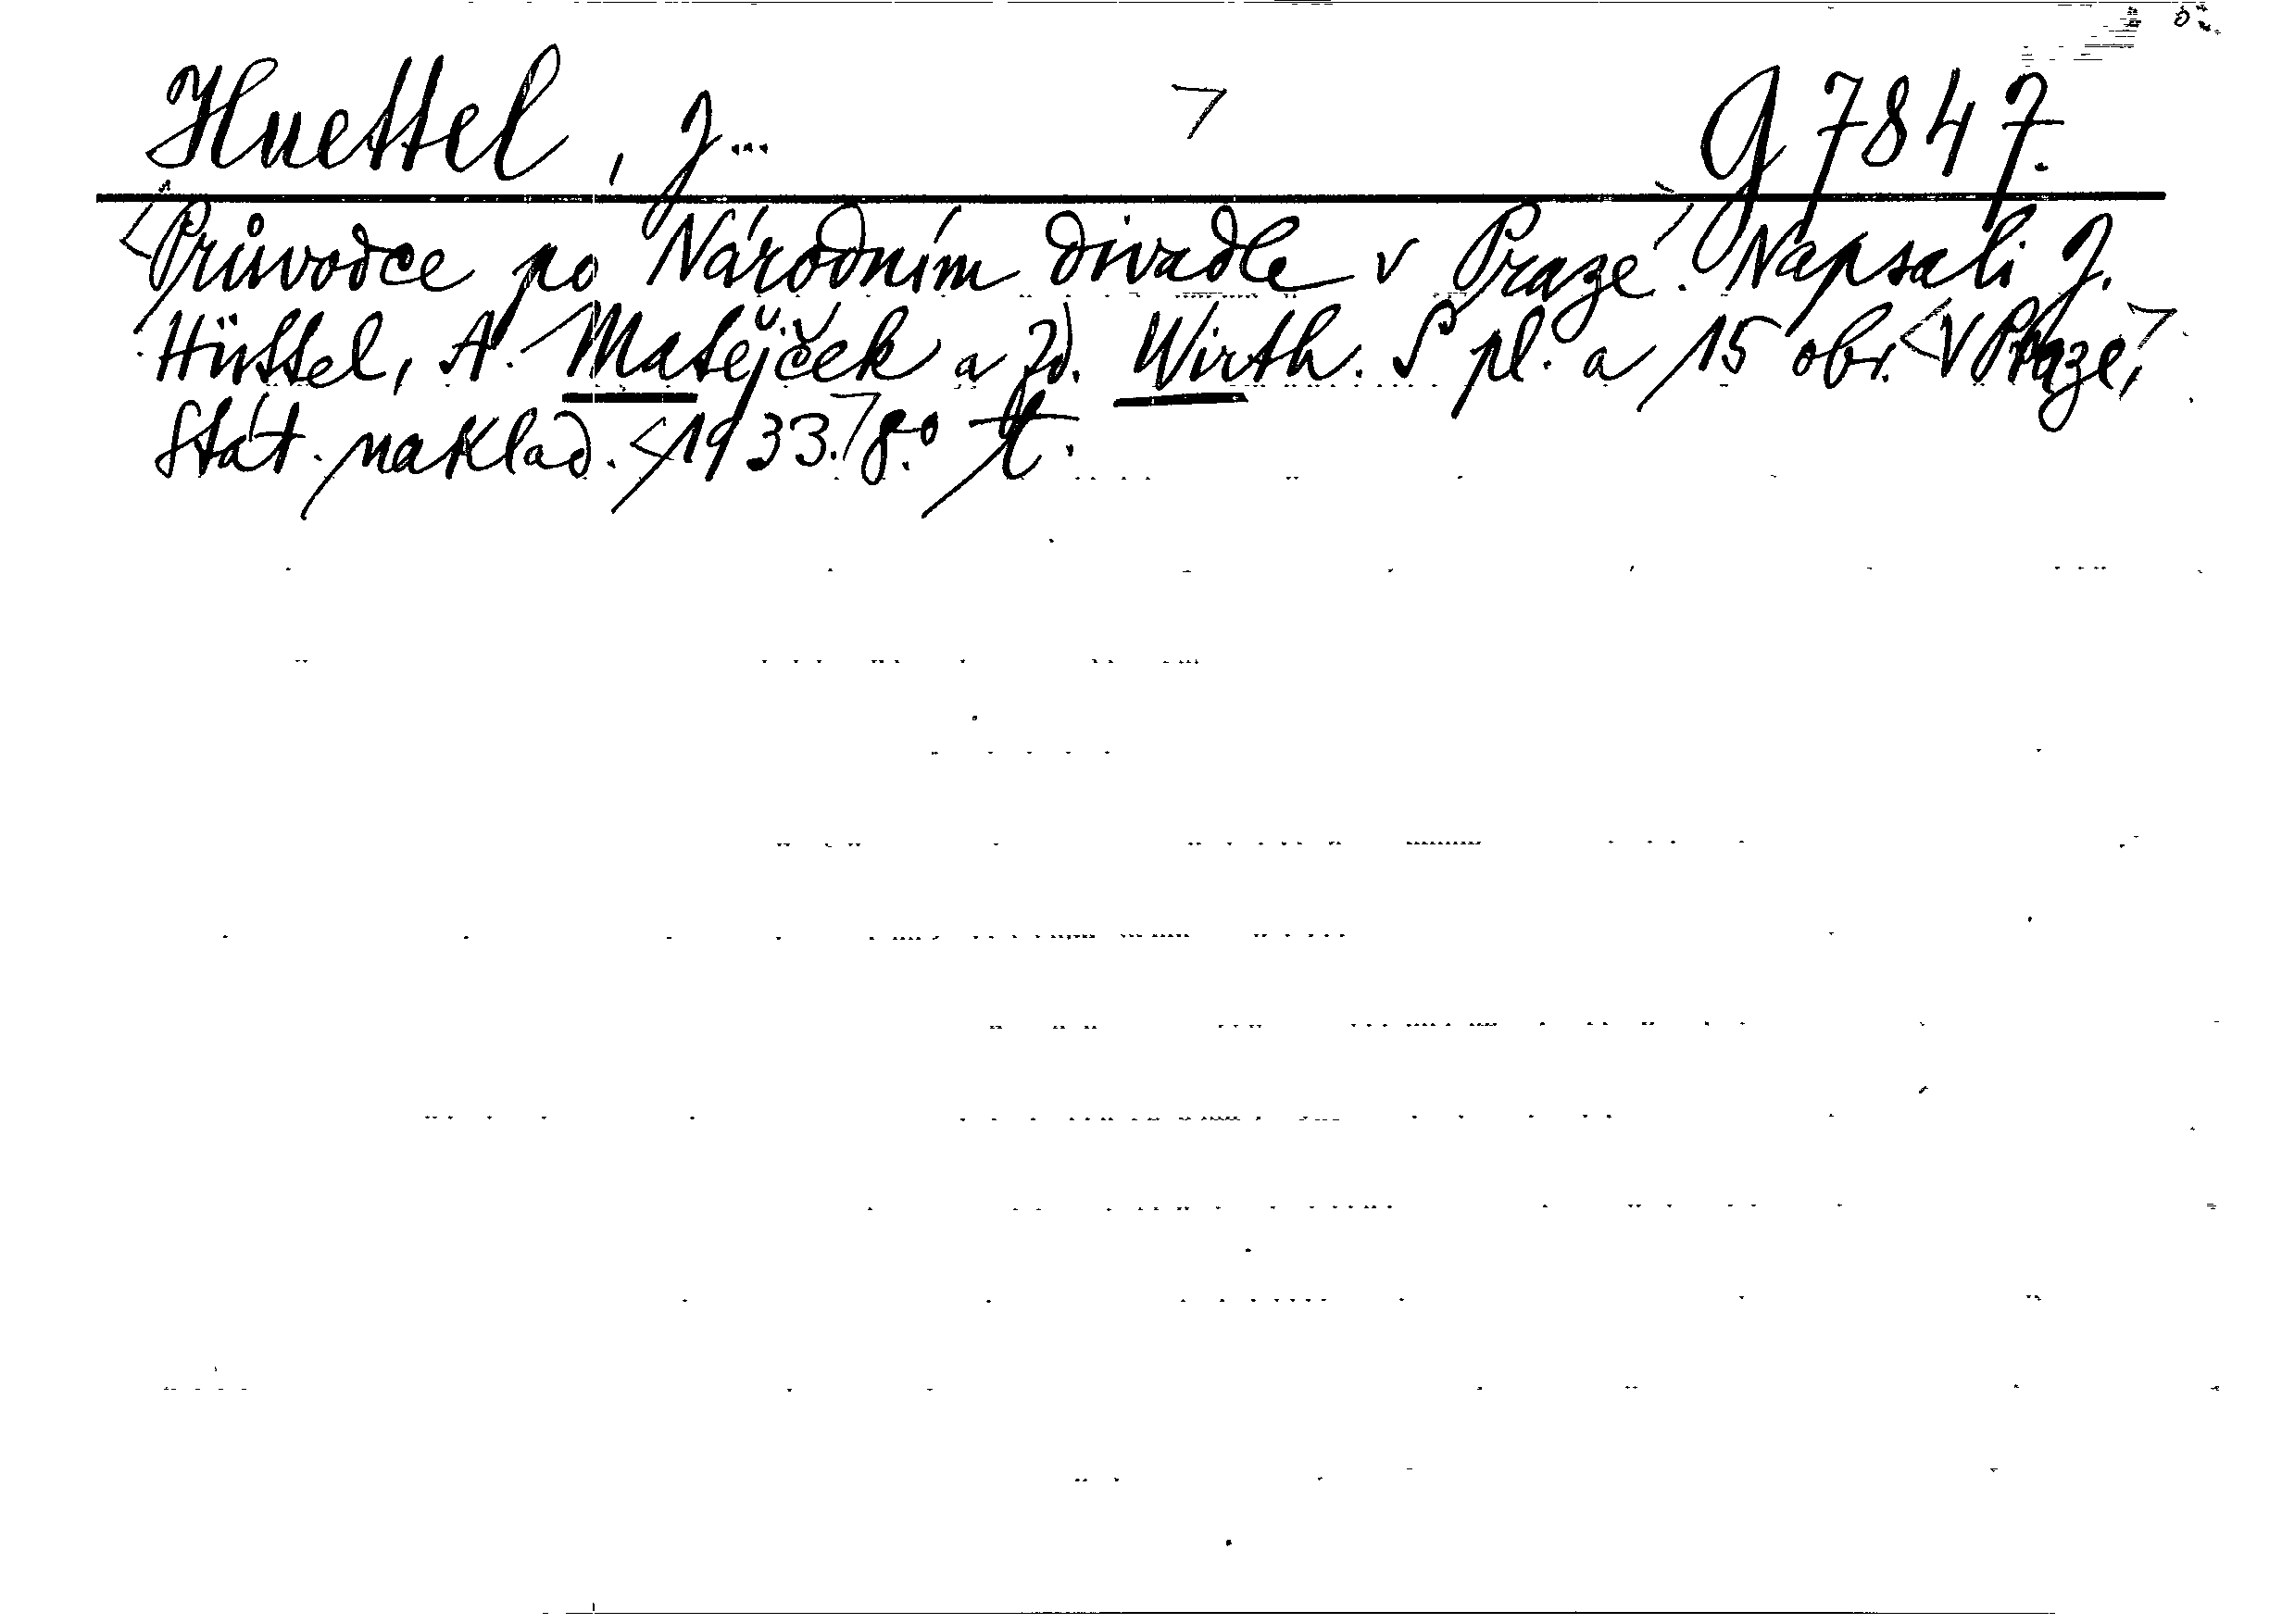 Huettel, J... > G 7847.
<Průvodce po Národním divadle v Praze>. Napsali J.
Hüttel, A. Matějček a Zd. Wirth. S pl. a 15 obr. <V Praze,>
Stát. naklad. <1933.> 8.° t.